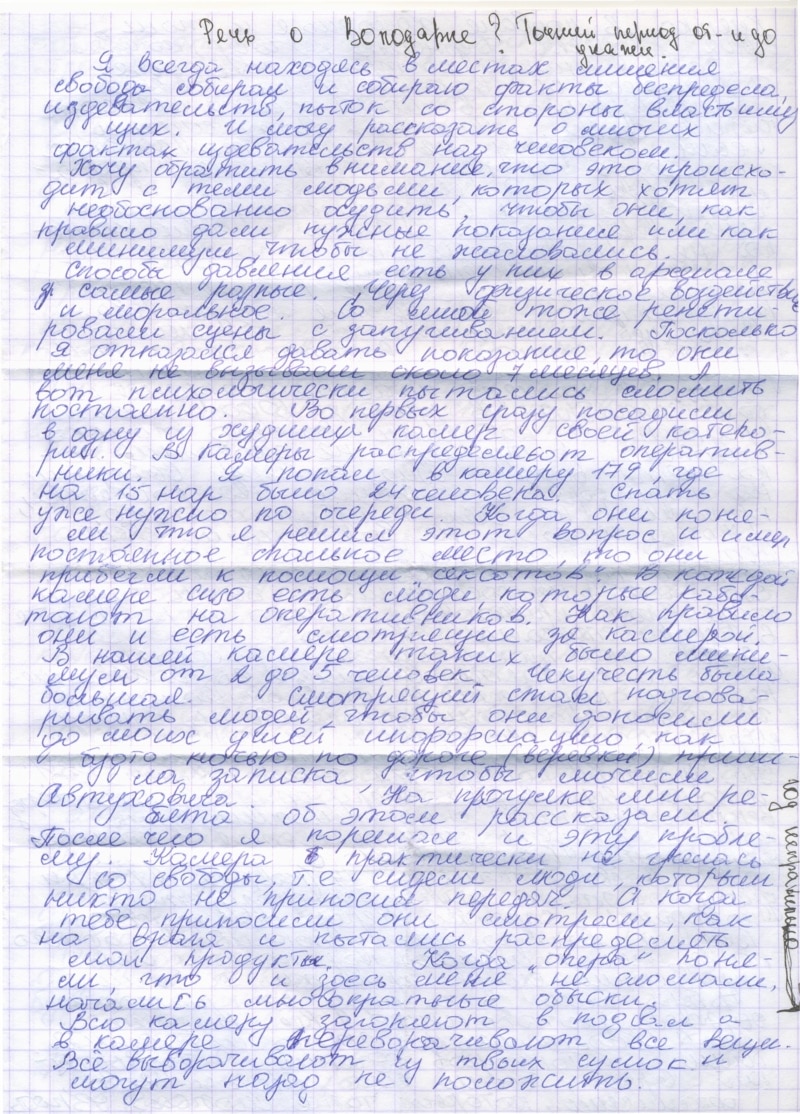 Речь о Володарке? Точный период от- и до
укажи.
Я всегда находясь в местах лишения
свободы собирал и собираю факты беспредела,
издевательств, пыток со стороны власть иму
щих. И могу рассказать о многих
фактах издевательств над человеком.
Хочу обратить внимание, что это происхо-
дит с теми людьми, которых хотят
необоснованно осудить, чтобы они, как
правило дали нужные показания или как
минимум, чтобы не жаловались.
Способы давления есть у них в арсенале
самые разные. Через физическое воздействие
и моральное. Со мной тоже репети-
ровали сцены с запугиванием. Поскольку
я отказался давать показания, то они
меня не вызывали около 7 месяцев. А
вот психологически пытались сломить
постоянно. Во первых сразу посадили
в одну из худших камер своей катего-
рии. В камеры распределяют оператив-
ники. Я попал в камеру 179, где
на 15 нар было 24 человека. Спать
уже нужно по очереди. Когда они поня-
ли что я решил этот вопрос и имел
постоянное спальное место, то они
прибегли к помощи "сексотов". В каждой
камере сизо есть люди, которые рабо-
тают на оперативников. Как правило
они и есть смотрящие за камерой.
В нашей камере таких было мини-
мум от 2 до 5 человек. Текучесть была
большая. Смотрящий стал подгова-
ривать людей, чтобы они доносили
до моих ушей информацию как
будто ночью по дороге (веревки) приш-
ла записка, чтобы мочили
Автуховича. На прогулке мне ре-
бята об этом рассказали.
После чего я порешал и эту пробле-
му. Камера практически не грелась
со свободы, т.е. сидели люди, которым
никто не приносил передач. А когда
тебе приносили они смотрели, как
на врага и пытались распределить
мои продукты. Когда "опера" поня-
ли, что и здесь меня не сломали,
начались многократные обыски.
Всю камеру загоняют в подвал а
в камере переворачивают все вещи.
Всё выворачивают из твоих сумок и
могут назад не положить.